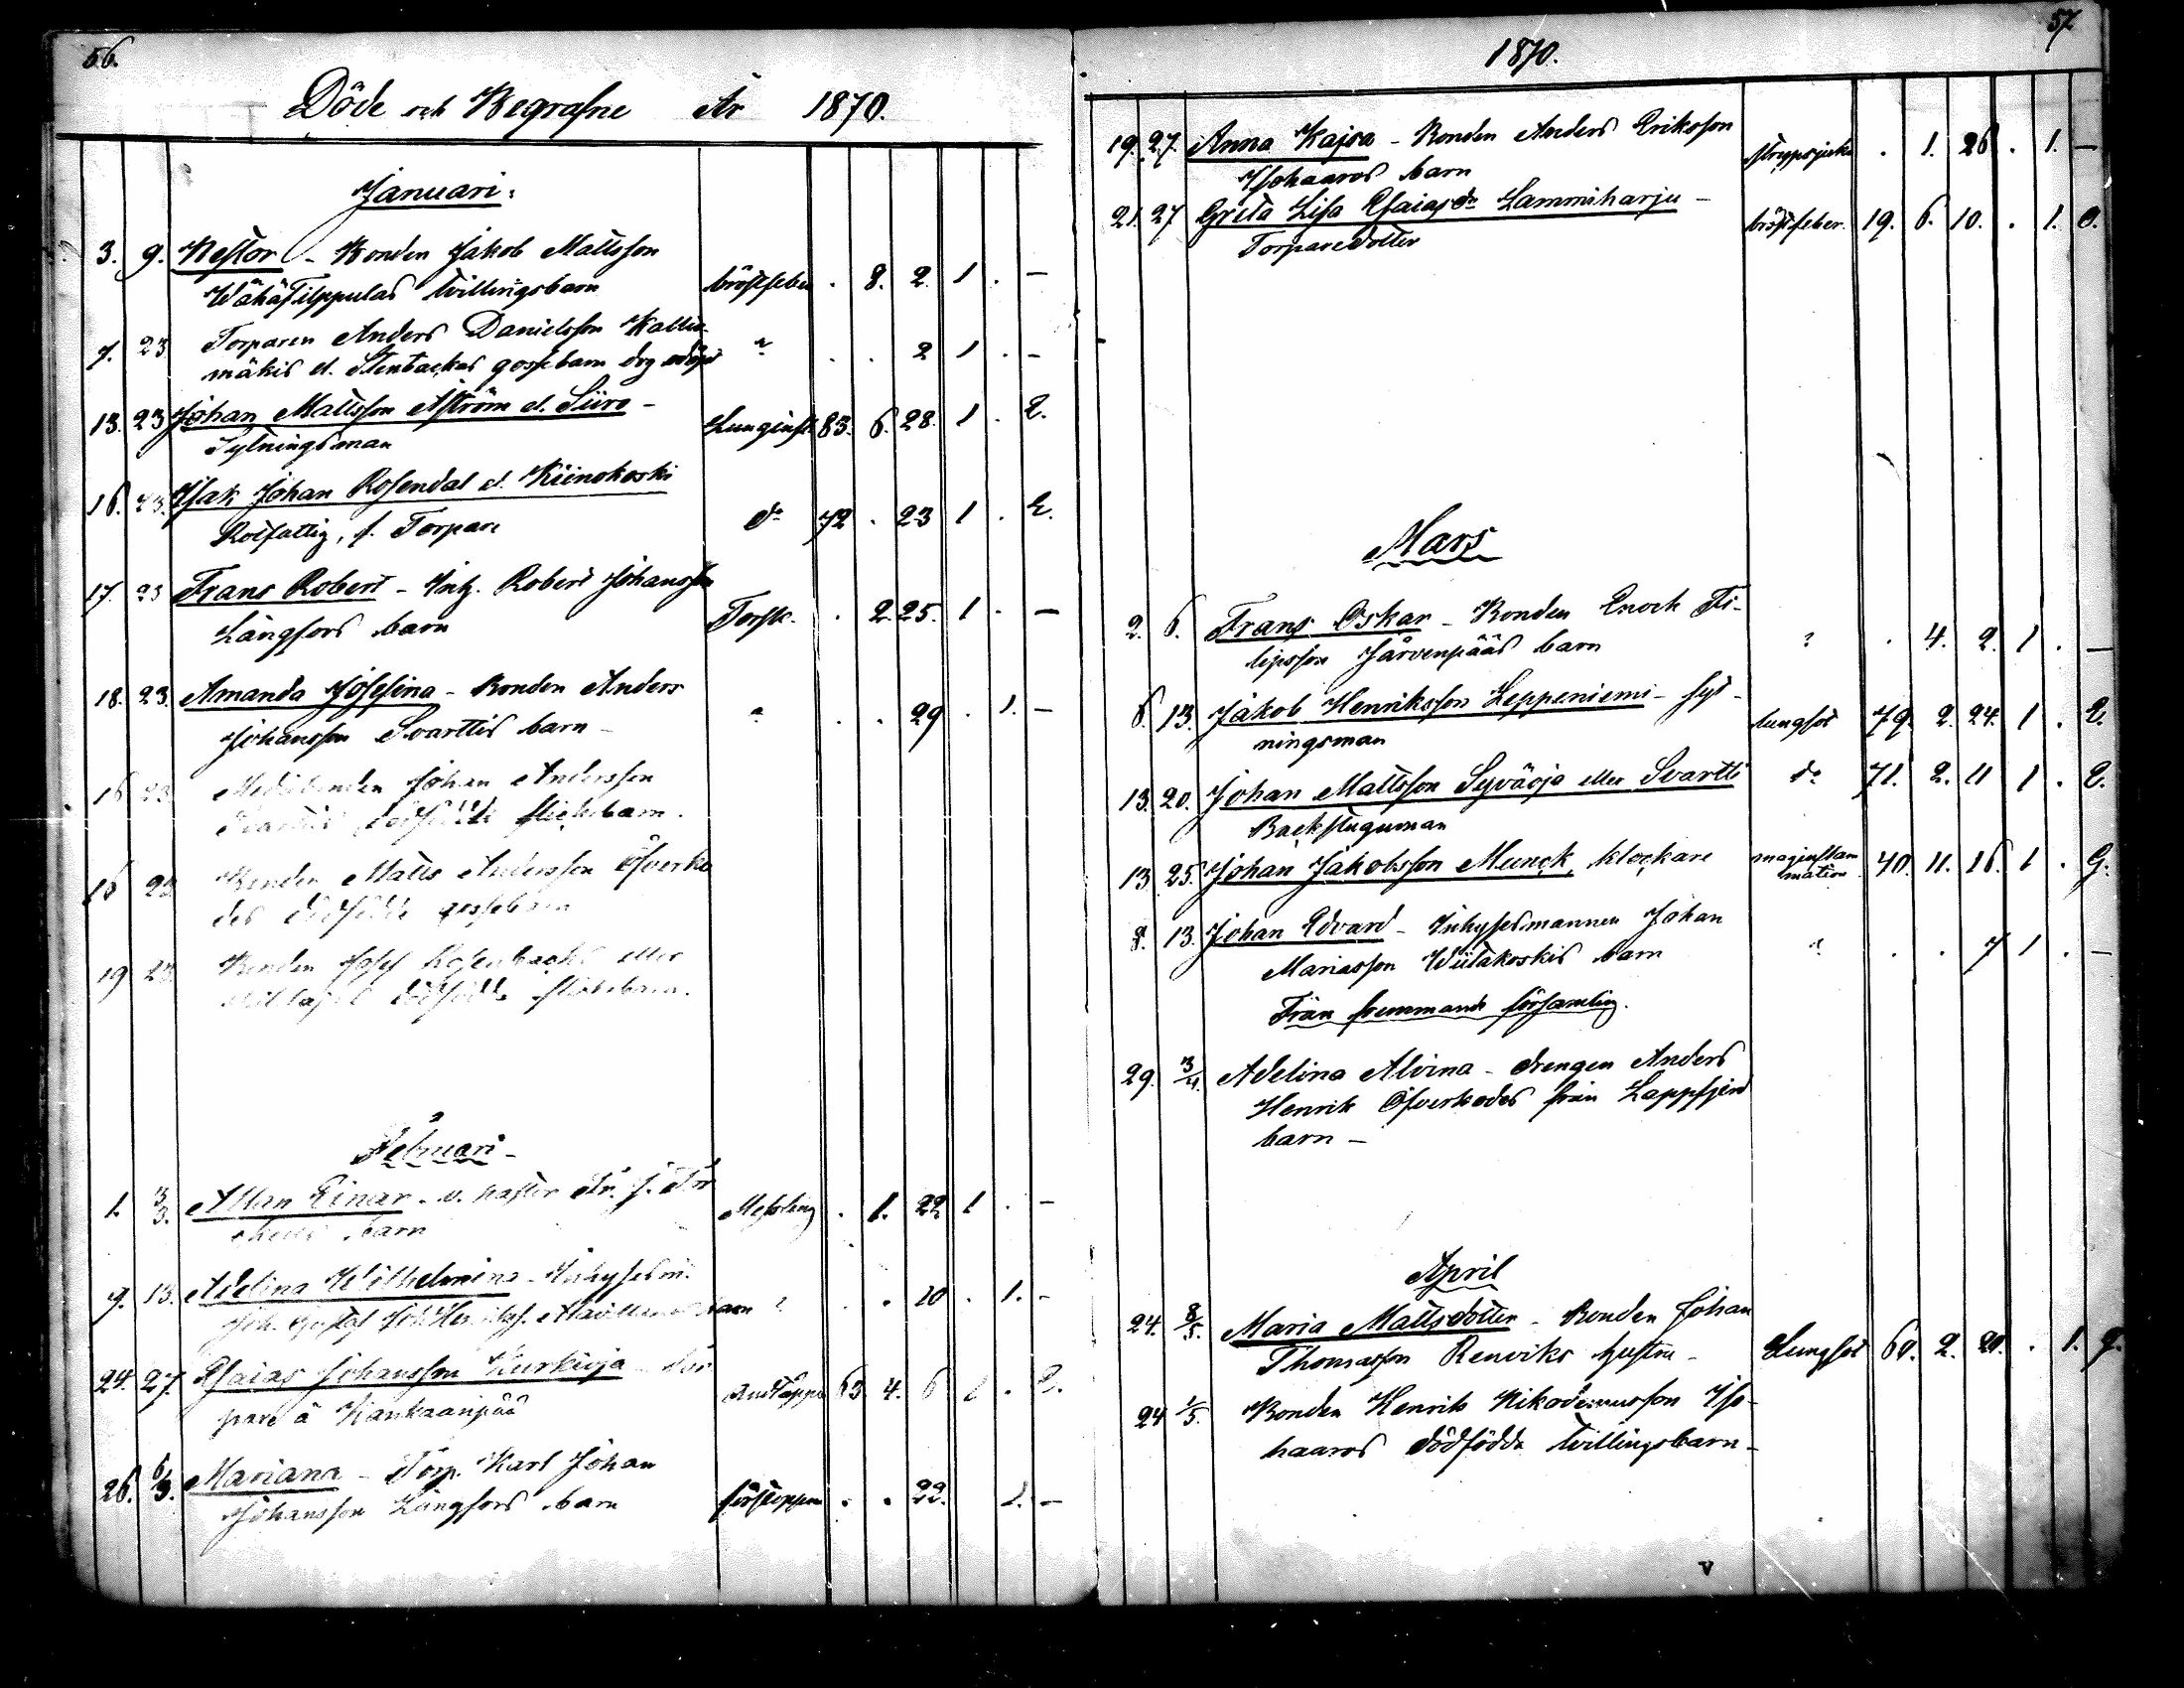 56.
Döde och Begrafne År 1870.
Januari:
3. 9. Nestor - Bonden Jakob Mattsson
WähäFilppulas tvillingsbarn bröstfeber . 8. 2. 1 . —
7. 23 Torparen Anders Danielsson Kallio-
mäkis el. Stenbackas gossebarn dog odöpt " . . 2 1 . -
13. 23 Johan Mattsson Åström el. Siiro -
Sytningsman Lunginfl. 83. 6. 28. 1 . E.
16. 23. Isak Johan Rosendal el. Kiinokoski
Rotfattig, f. Torpare do 72 . 23 1 . E.
17. 23 Frans Robert - Inh. Robert Johansson
Långfors barn Torsk. . 2. 25. 1 . —
18. 23. Amanda Josefina - Bonden Anders
Johansson Svarttis barn - " . . 29 . 1. —
16 23. Johan Andersson
dödfödde flickebarn.
16 23. Bonden Matts Andersson Öfverko
des dödfödde gossebarn
19 23. Bonden Josef Rosenbacks eller
dödfödde flickebarn.
Februari -
1. 3/3. Allan Einar - v. Pastor Fr. J.
barn Messling . 1. 22 1 . —
9. 13. Adelina Wilhelmina - Inhysesm.
Joh. Gustaf barn " . . 20 . 1. -
24. 27. Esaias Johansson Kurkioja - Tor
pare å Kankaanpää Andtäppa 63. 4. 6 1 . E.
26. 6/3. Mariana - Torp. Karl Johan
Johansson Långfors barn förstoppn . . 22. 1. —
57.
1870.
19. 27. Anna Kajsa - Bonden Anders Eriksson
Isohaaros barn strypsjuka . 1. 26 . 1. —
21. 27 Greta Lisa Esaiasdr Lammiharju -
Torparedotter bröstfeber. 19. 6. 10. . 1. O.
Mars
2. 6. Frans Oskar - Bonden Enoch Fi-
lipsson Järvenpääs barn " . 4. 2. 1 . —
6. 13. Jakob Henriksson Leppeniemi - syt-
ningsman lungsot 79. 2. 24. 1 . E.
13. 20. Johan Mattsson Syväoja eller Svartti do 71. 2. 11 1 . E.
Backstuguman
13 25. Johan Jakobsson Munck, klockare maginflam
mation 40. 11. 16. 1 . G.
8. 13. Johan Edvard - Inhysesmannen Johan
Mariasson Wiitakoskis barn " . . 7 1 . —
Från fremmande församling.
29. 3/4. Adelina Alvina - drengen Anders
Henrik Öfverkodes från Lappfjerd
barn -
April
24. 8/5. Maria Mattsdotter - Bonden Johan
Thomasson Renviks hustru - Lungsot 60. 2. 20. . 1. G.
24 1/5. Bonden Henrik Nikodemusson Iso-
haaros dödfödda tvillingsbarn -